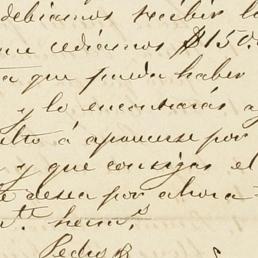 debiamos recibir lo
que cediamos $150.
ta que pueda haber
y lo encontrarás a
sulto á aponerse por
y que consigas el
te desea por ahora
tu af.mo herm.o
Pedro